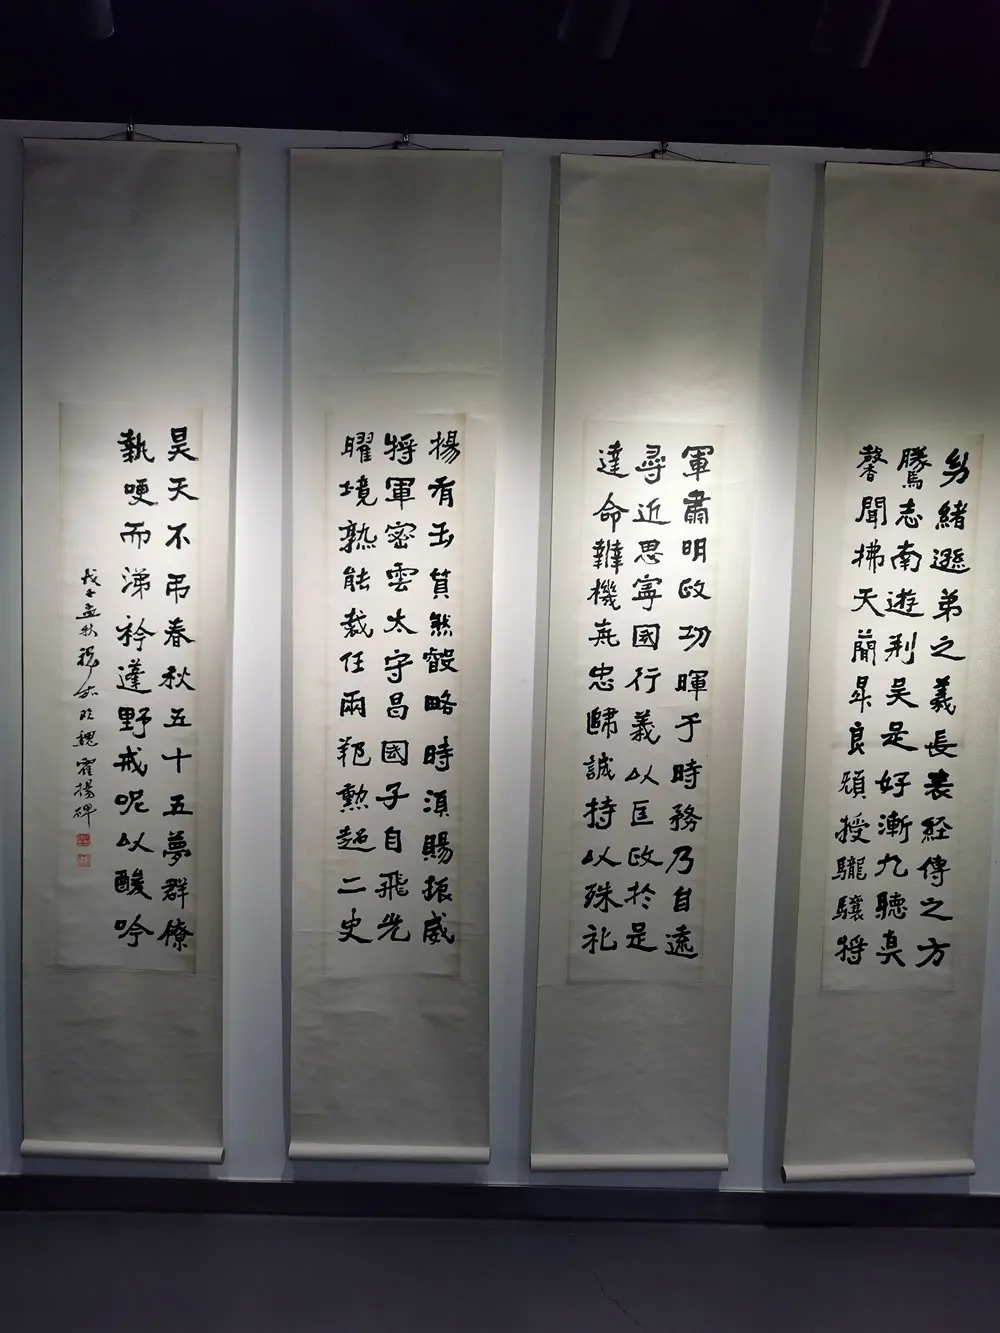 幼緒遜弟之義長裴經傳之方
騰志南遊荆吴是好漸九聽真
馨聞拂天蘭昇良頒授驪驤將
軍肅明政功暉于時務乃自遠
尋近思寧國行義以匡政於是
達命辥機燕忠歸誠持以殊礼
揚有玉質然毅略時須賜振威
將軍密雲太守昌國子自飛光
曜境熟能裁任兩範勲超二史
昊天不弔春秋五十五夢群僚
執哽而涕衿蓬野戒呢以酸吟
戊子孟秋 臨魏霍揚碑